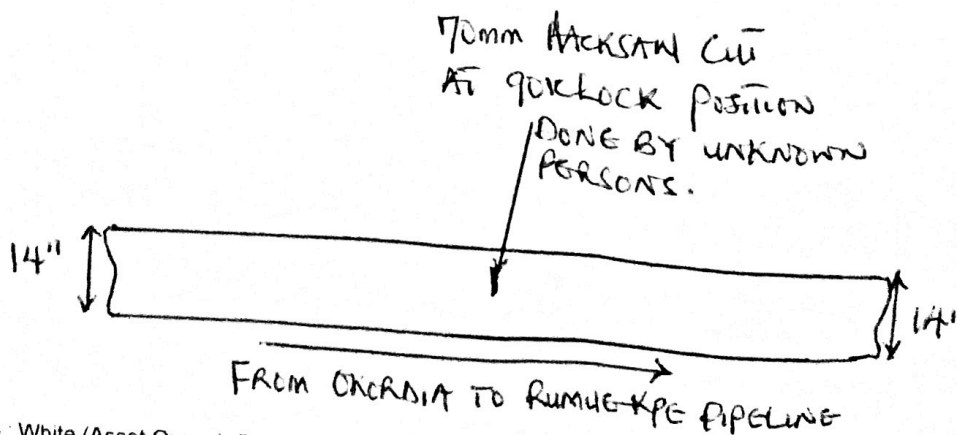 70mm HACKSAW CUT
AT 9OKLOCK POSITION
DONE BY UNKNOWN
PERSONS.
14"
14"
FROM OKORDIA TO RUMUE-KPE PIPELINE
White (Asset